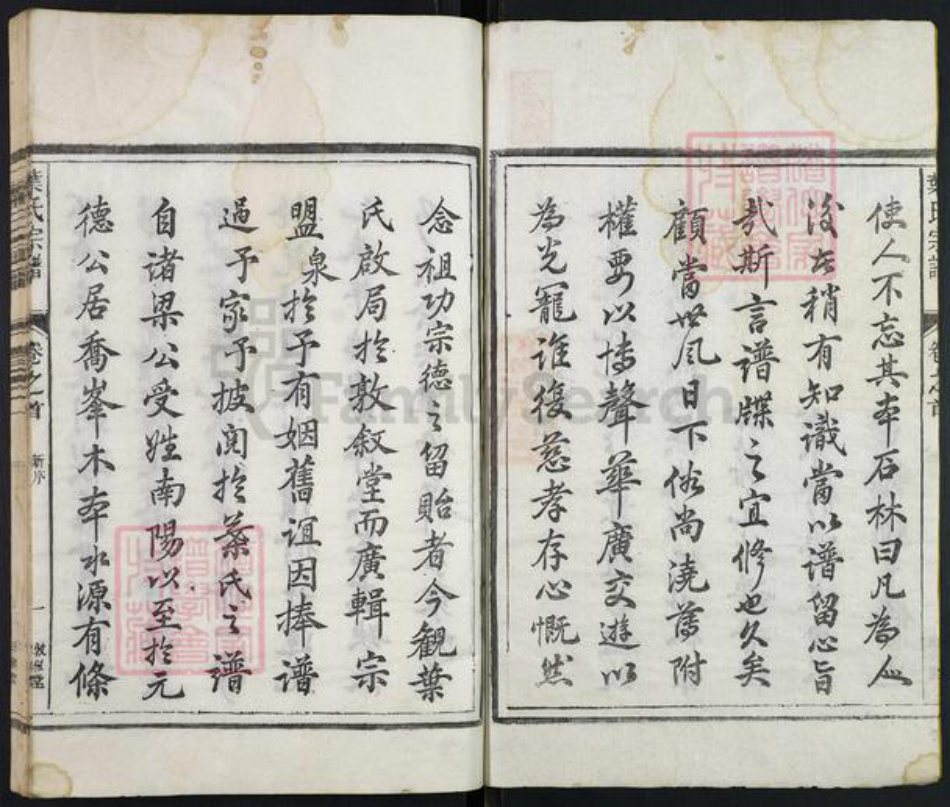 使人不忘其本石林曰凡為人
後者稍有知識當以譜留心旨
哉斯言譜牒之宜修也久矣
顧當世風日下俗尚澆薄附
權要以博聲華廣交遊以
為光寵誰復慈孝存心慨然
念祖功宗德之留貽者今觀葉
氏啟局於敦敘堂而廣輯宗
盟泉於予有姻舊誼因捧譜
過予家予披閱於葉氏之譜
自諸梁公受姓南陽以至於元
德公居喬峯木本水源有條
葉氏宗譜
卷之首
新序
一
敦敘堂
葉氏宗譜
卷之首
FamilySearch